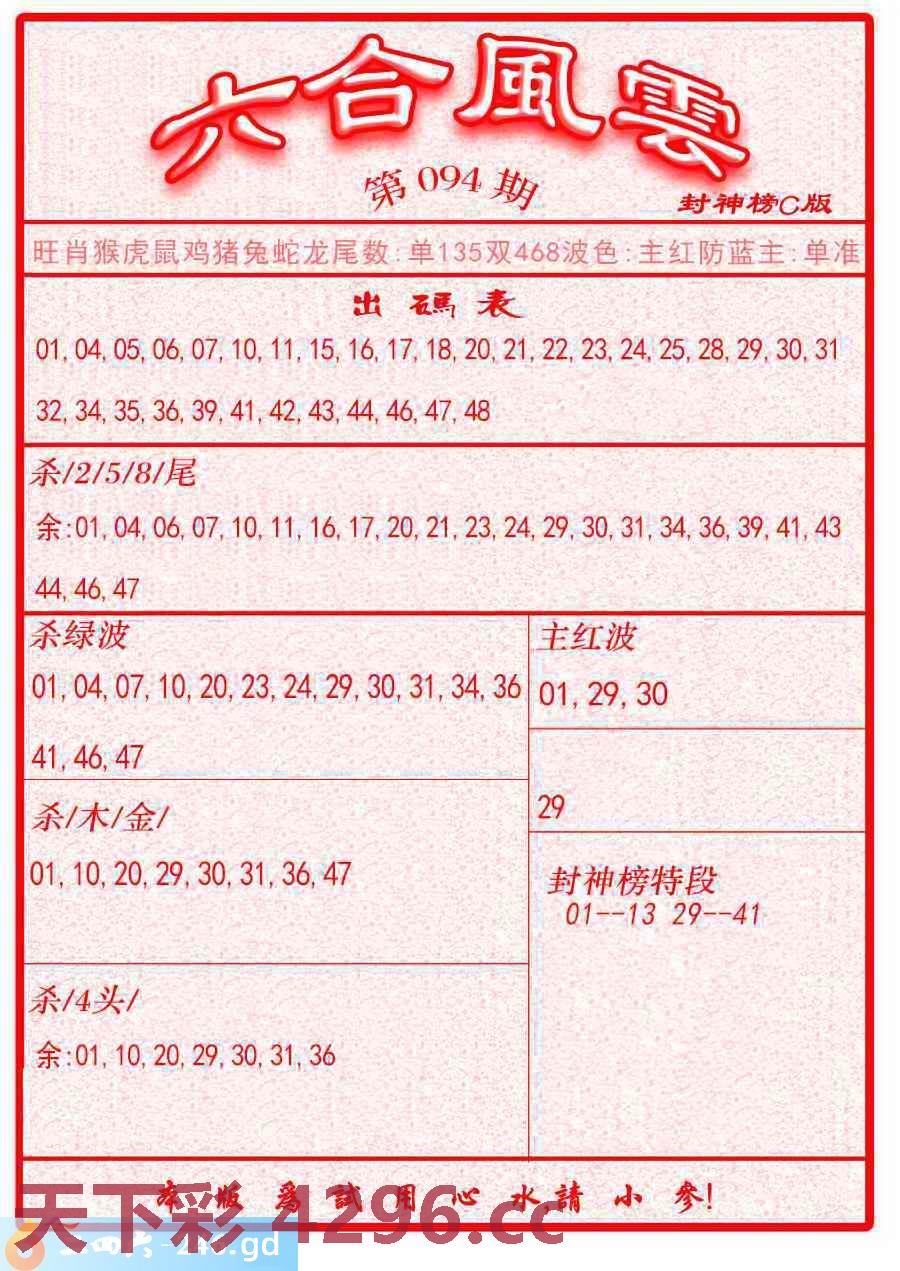 六合風雲
第094期
封神榜C版
旺肖猴虎鼠鸡猪兔蛇龙尾数:单135双468波色:主红防蓝主:单准
出碼表
01,04,05,06,07,10,11,15,16,17,18,20,21,22,23,24,25,28,29,30,31
32,34,35,36,39,41,42,43,44,46,47,48
杀/2/5/8/尾
余:01,04,06,07,10,11,16,17,20,21,23,24,29,30,31,34,36,39,41,43
44,46,47
杀绿波
01,04,07,10,20,23,24,29,30,31,34,36
41,46,47
主红波
01,29,30
29
杀/木/金/
01,10,20,29,30,31,36,47
封神榜特段
01--13 29--41
杀/4头/
余:01,10,20,29,30,31,36
本版爲試用心水,請小參!
天下彩 4296.cc
二四六-246.gd